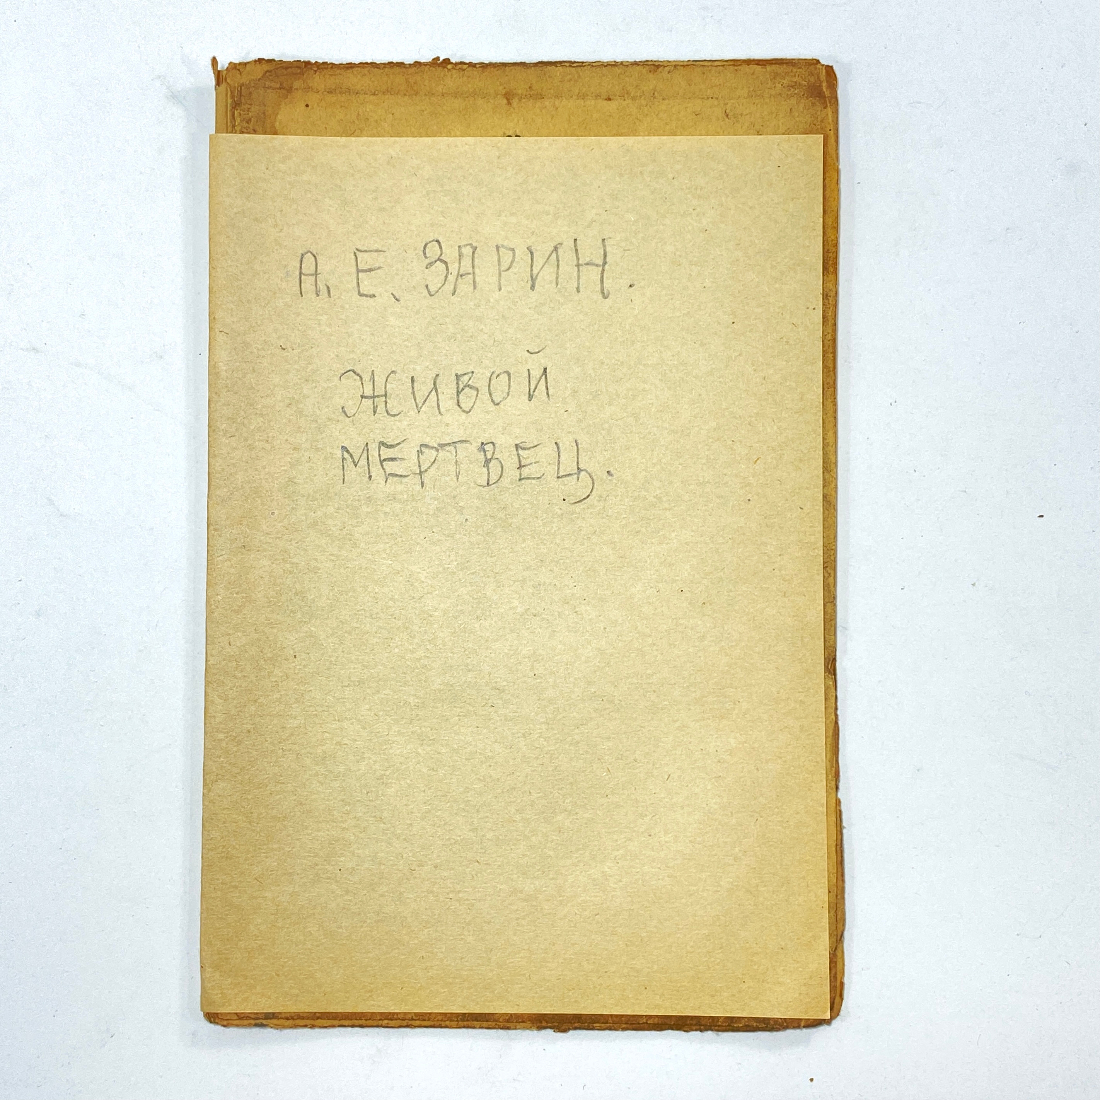 А. Е. ЗАРИН.
ЖИВОЙ
МЕРТВЕЦ.